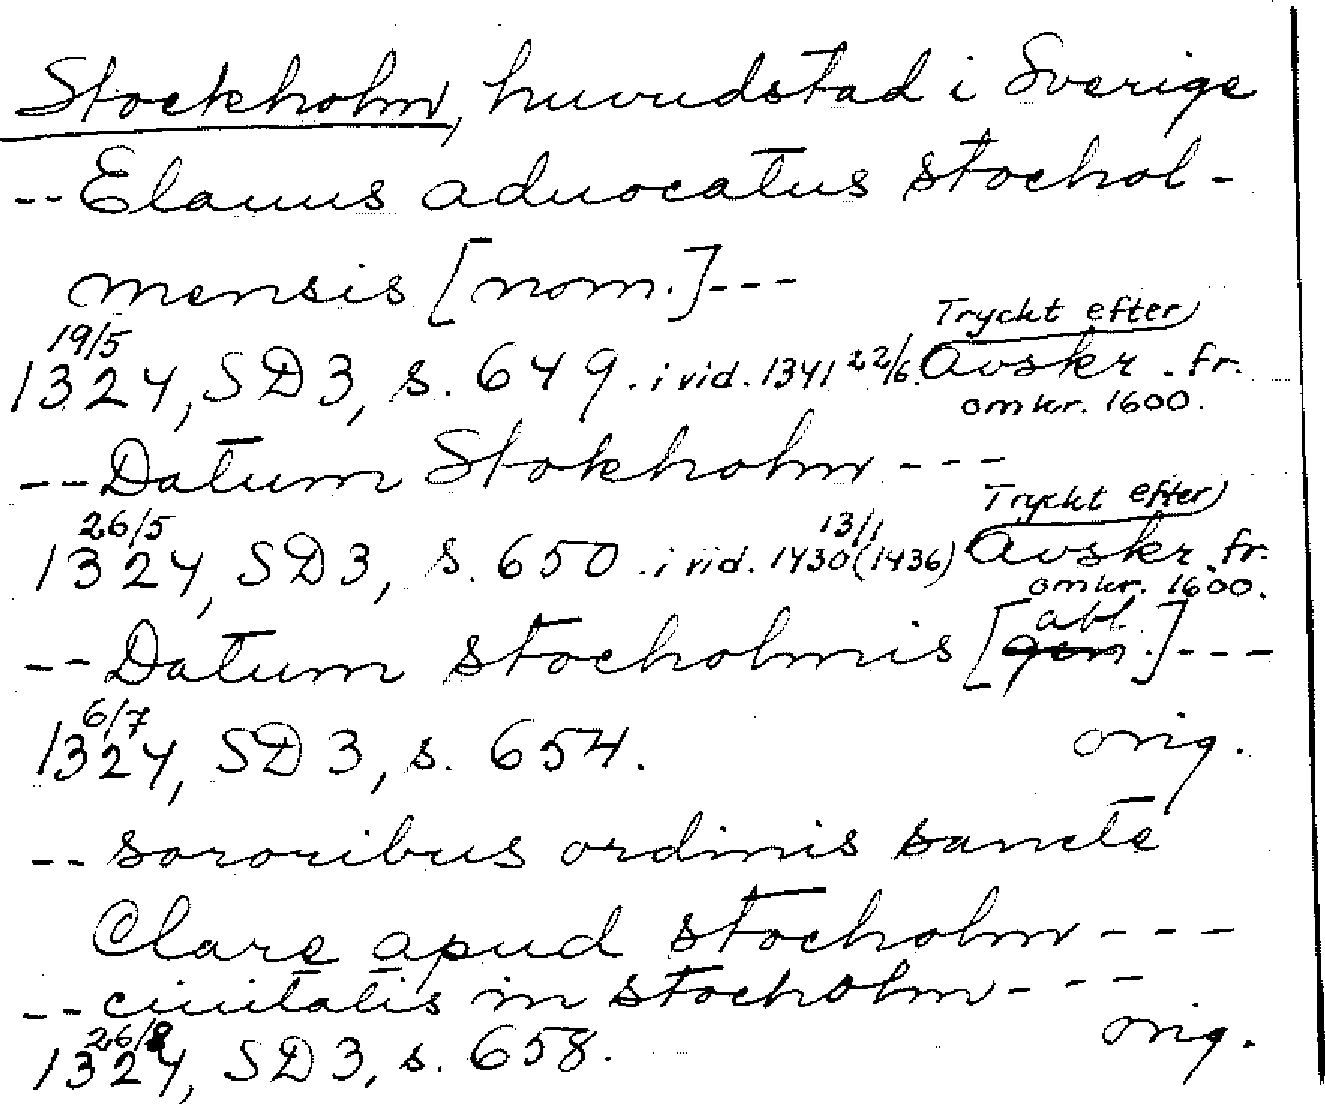 Stockholm, huvudstad i Sverige
-- Elauus aduocatus stochol-
mensis [nom.] ---
19/5
1324, SD 3, s. 649. i vid. 1341 22/6. Tryckt efter Avskr. fr. omkr. 1600.
-- Datum Stokholm ---
26/5
1324, SD 3, s. 650. i vid. 1430 13/1 (1436) Tryckt efter Avskr. fr. omkr. 1600.
-- Datum stocholmis [abl.] ---
6/7
1324, SD 3, s. 654. orig.
-- sororibus ordinis sancte
Clare apud stocholm ---
-- ciuitatis in stocholm ---
26/8
1324, SD 3, s. 658. orig.